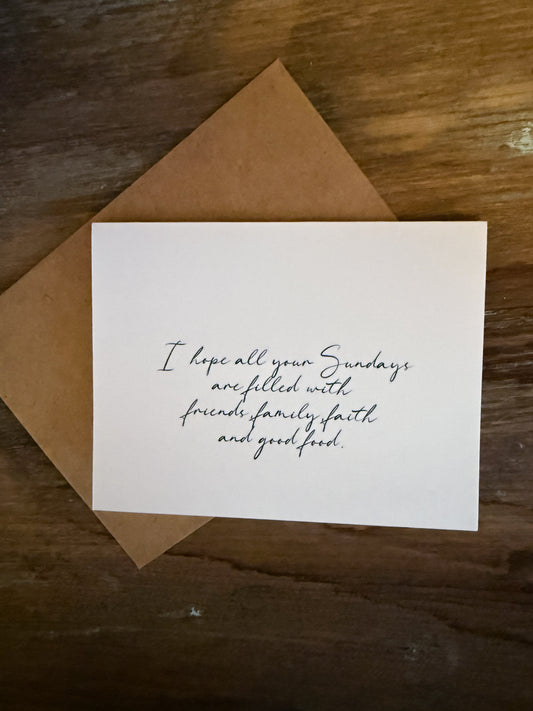 I hope all your Sundays
are filled with
friends, family, faith
and good food.